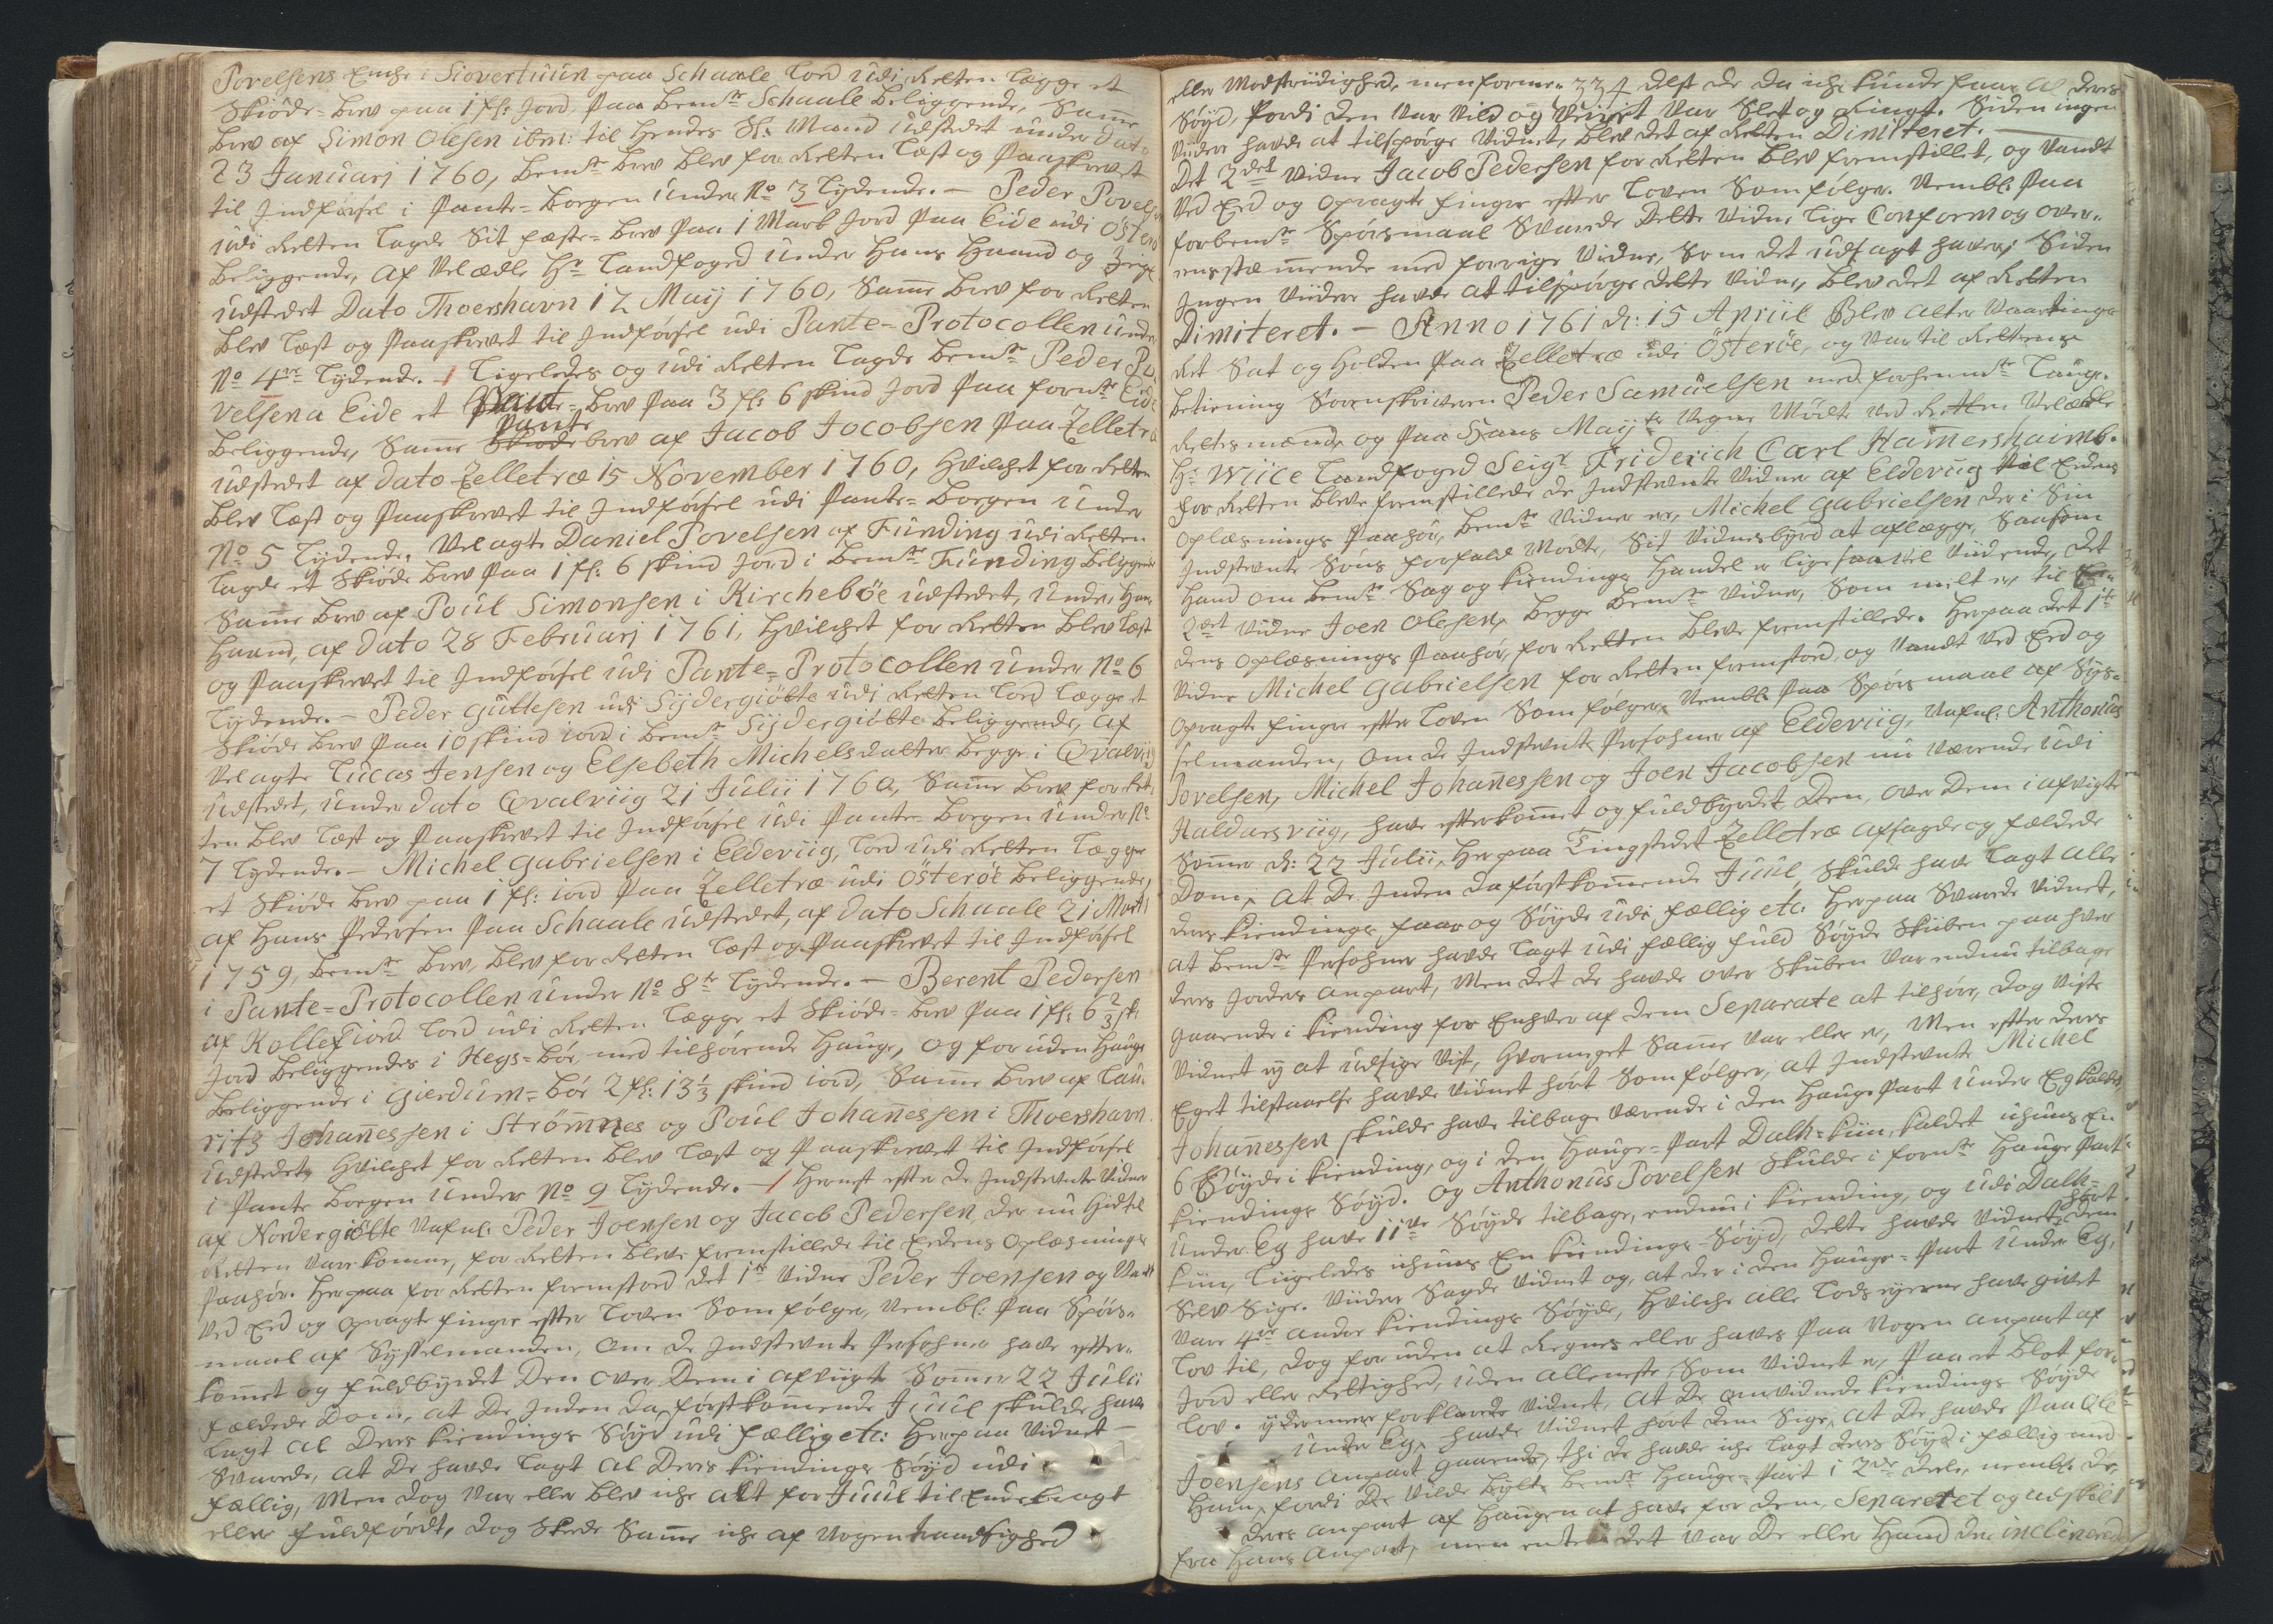 Povelsens Enche i Siovertuun paa Schaale lod udi Retten Lægge et
Skiöde-Brev paa 1 fl: Jord paa bemte Schaale beliggende, Samme
brev af Simon Olesen ibm: til hendes Sl: Mand udstedet under Dato
23 Januarj 1760, bemte brev blev for Retten Læst og Paaskrevet
til Indförsel i Pante-Bogen under No 3 Lydende. - Peder Povels
udi Retten Lagde Sit fæste-Brev paa 1 Mark Jord paa Eide udi Öster
beliggende, af Velædle Hr Landfoged under Hans Haand og Zeigl
udstedet Dato Thorshavn 17 Maij 1760, Samme Brev for Retten
blev Læst og Paaskrevet til Indförsel udi Pante-Protocollen under
No 4re Lydende. - Ligeledes og udi Retten Lagde bemte Peder Po
velsen a Eide et Pant-Brev paa 3 fl: 6 skind Jord paa fornte Eide
beliggende, Samme Pante brev af Jacob Jocobsen paa Zelletræ
udstedet af Dato Zelletræ 15 November 1760, hvilchet for Retten
blev Læst og Paaskrevet til Indförsel udi Pante-Bogen under
No 5 Lydende. Velagte Daniel Povelsen af Funding udi Retten
Lagde et Skiöde brev paa 1 fl: 6 skind Jord i bemte Funding beliggende
Samme Brev af Poul Simonsen i Kirchebøe udstedet, under Hans
Haand, af Dato 28 Februarj 1761, hvilchet for Retten blev Læst
og Paaskrevet til Indförsel udi Pante-Protocollen under No 6
Lydende. - Peder Guttesen udi Sydergiötte udi Retten Lod Lægge et
Skiöde brev paa 10 skind iord i bemte Sydergiötte beliggende, af
Velagte Lucas Jensen og Elsebeth Michelsdatter begge i Qvalviig
udstedet, under Dato Qvalviig 21 Julii 1760, Samme Brev for Ret-
ten blev Læst og Paaskrevet til Indförsel udi Pante-Bogen under No
7 Lydende. - Michel Gabrielsen i Eldeviig, Lod udi Retten Lægge
et Skiöde brev paa 1 fl: iord paa Zelletræ udi Österöe beliggende,
af Hans Pedersen paa Schaale udstedet, af Dato Schaale 21 Marti
1759, bemte brev, blev for Retten Læst og Paaskrevet til Indförsel
i Pante-Protocollen under No 8te Lydende. - Berent Pedersen
af Kollefiord Lod udi Retten Lægge et Skiöde-Brev paa 1 fl: 6 2/3 sk:
Jord beliggendes i Hegs-böe med tilhörende Hauge, og foruden Hauge
beliggende i Gierdum-böe 2 fl: 13 1/3 skind iord, Samme Brev af Lau-
ritz Johannessen i Strömnes og Poul Johannessen i Thorshavn
udstedet, hvilchet for Retten blev Læst og Paaskrevet til Indförsel
i Pante Bogen under No 9 Lydende. - Hernest efter de Indstevnte Vidner
af Nordergiötte Nafnl: Peder Joensen og Jacob Pedersen, der nu hidtil
Retten vare komne, for Retten blev fremstillede til Eedens Oplæsnings
Paahör. Herpaa for Retten fremstod det 1te Vidne Peder Joensen og Vandt
ved Eed og Opragte finger efter Loven Som fölger, Nembl: paa Spörs-
maal af Sysselmanden, om de Indstevnte Persohner have efter-
kommet og fuldbyrdet Den over Dem i afvigte Sommer 22 Julii
fældede Dom, at De Inden da förstkommende Juul skulde have
Lagt al Deres kiendings Söyd udi fællig etc: Herpaa Vidnet
Svarede, at De havde Lagt al Deres kiendings Söyd udi
fællig, Men dog var eller blev iche alt for Juul til Ende bragt
eller fuldfördt, dog Skede Samme iche af Nogen Haardsighed
eller Modstridighed, men formed 334 elst de da iche kunde faae al deres
Söyd, fordi den var vild og Veiret var Slet og Ringe. Siden ingen
Vidre havde at tilspörge Vidnet, blev det af Retten Dimiteret. -
Det 2det Vidne Jacob Pedersen for Retten blev fremstillet, og Vandt
ved Eed og Opragte finger efter Loven Som fölger. Nembl: paa
forbemte Spörsmaal Svarede dette Vidne Lige Conform og over-
ensstæmmende med forrige Vidne, Som det udsagt haver; Siden
Ingen Vidre havde at tilspörge dette Vidne, blev det af Retten
Dimiteret. - Anno 1761 d: 15 Apriil Blev atter Vaartings
Ret Sat og Holden paa Zelletræ udi Österöe, og var til Rettens
betiening Sorenskriveren Peder Samuelsen med forhenmte Laug-
Rettesmænd og paa Hans Mayts Vegne Mödte ved Retten Velædle
Hr Wiice Landfoged Seigr Friderich Carl Hammershaimb.
for Retten bleve fremstillede de Indstevnte Vidner af Eldeviig til Eedens
Oplæsnings Paahör, bemte Vidner er, Michel Gabrielsen der i Sin
Indstevnte Söns forfald Mödte, Sit Vidnesbyrd at aflægge, Saasom
Hand om bemte Sag og kiendings Handel er ligesaavel Vidende, det
2det Vidne Joen Olesen, begge bemte Vidner, Som melt er til Ee-
dens Oplæsnings Paahör, for Retten bleve fremstillede. Herpaa det 1te
Vidne Michel Gabrielsen for Retten fremstod, og Vandt ved Eed og
Opragte finger efter Loven Som fölger, Nembl: paa Spörsmaal af Sys-
selmanden, om de Indstevnte Persohner af Eldeviig, Nafnl: Anthonius
Povelsen, Michel Johannessen og Joen Jacobsen nu værende udi
Haldarsviig, have efterkommet og fuldbyrdet Den, over Dem i afvigte
Sommer d: 22 Julii, her paa Tingstedet Zelletræ afsagde og fældede
Dom, at De Inden da förstkommende Juul skulde have Lagt alle
deres kiendings faar og Söyde udi fællig etc. Herpaa Svarede Vidnet,
at bemte Persohner havde Lagt udi fællig fuld Söyde Skiben paa hver
deres Jordes anpart, Men det de havde over Skiben var endnu tilbage
gaaende i kiending for Enhver af dem Separate at tilhöre, dog viste
Vidnet ey at udsige Vist, hvormeget Samme var eller er, Men efter deres
Eget tilstaaelse havde Vidnet hört Som fölger, at Indstevnte Michel
Johannessen skulde have tilbage værende i den Hauge Part under Eg kaldet,
6 Söyde i kiending, og i den Hauge-Part Dalh-kiin, kaldet ichuns En
kiendings Söyd. Og Anthonius Povelsen skulde i fornte Hauge Part
under Eg have 11ve Söyde tilbage, endnu i kiending, og udi Dalh-
kiin, Liigeledes ichuns En kiendings Söyd, dette havde Vidnet hört dem
Selv Sige. Viider Sagde Vidnet og, at der i den Hauge-Part under Eg,
vare 4re andre kiendings Söyde, hvilche alle Lodsejerne have givet
Lov til, dog foruden at Regnes eller haves paa Nogen anpart af
Jord eller Rettighed, uden alleneste, Som Vidnet er, paa et blot for-
Lov. ydermere forklarede Vidnet, at De anvidnede kiendings Söyde
under Eg, havde Vidnet hört dem Sige, at De havde paa Ole
Joensens anpart gaaende, thi de havde iche Lagt deres Söyd i fællig med
ham, fordi De vilde bytte bemte Hauge-Part i 2de deele, nembl: De,
deres anpart af Haugen at have for dem, Separetet og udskilt
fra Hans anpart, men enten det var De eller Hand der inclinerede